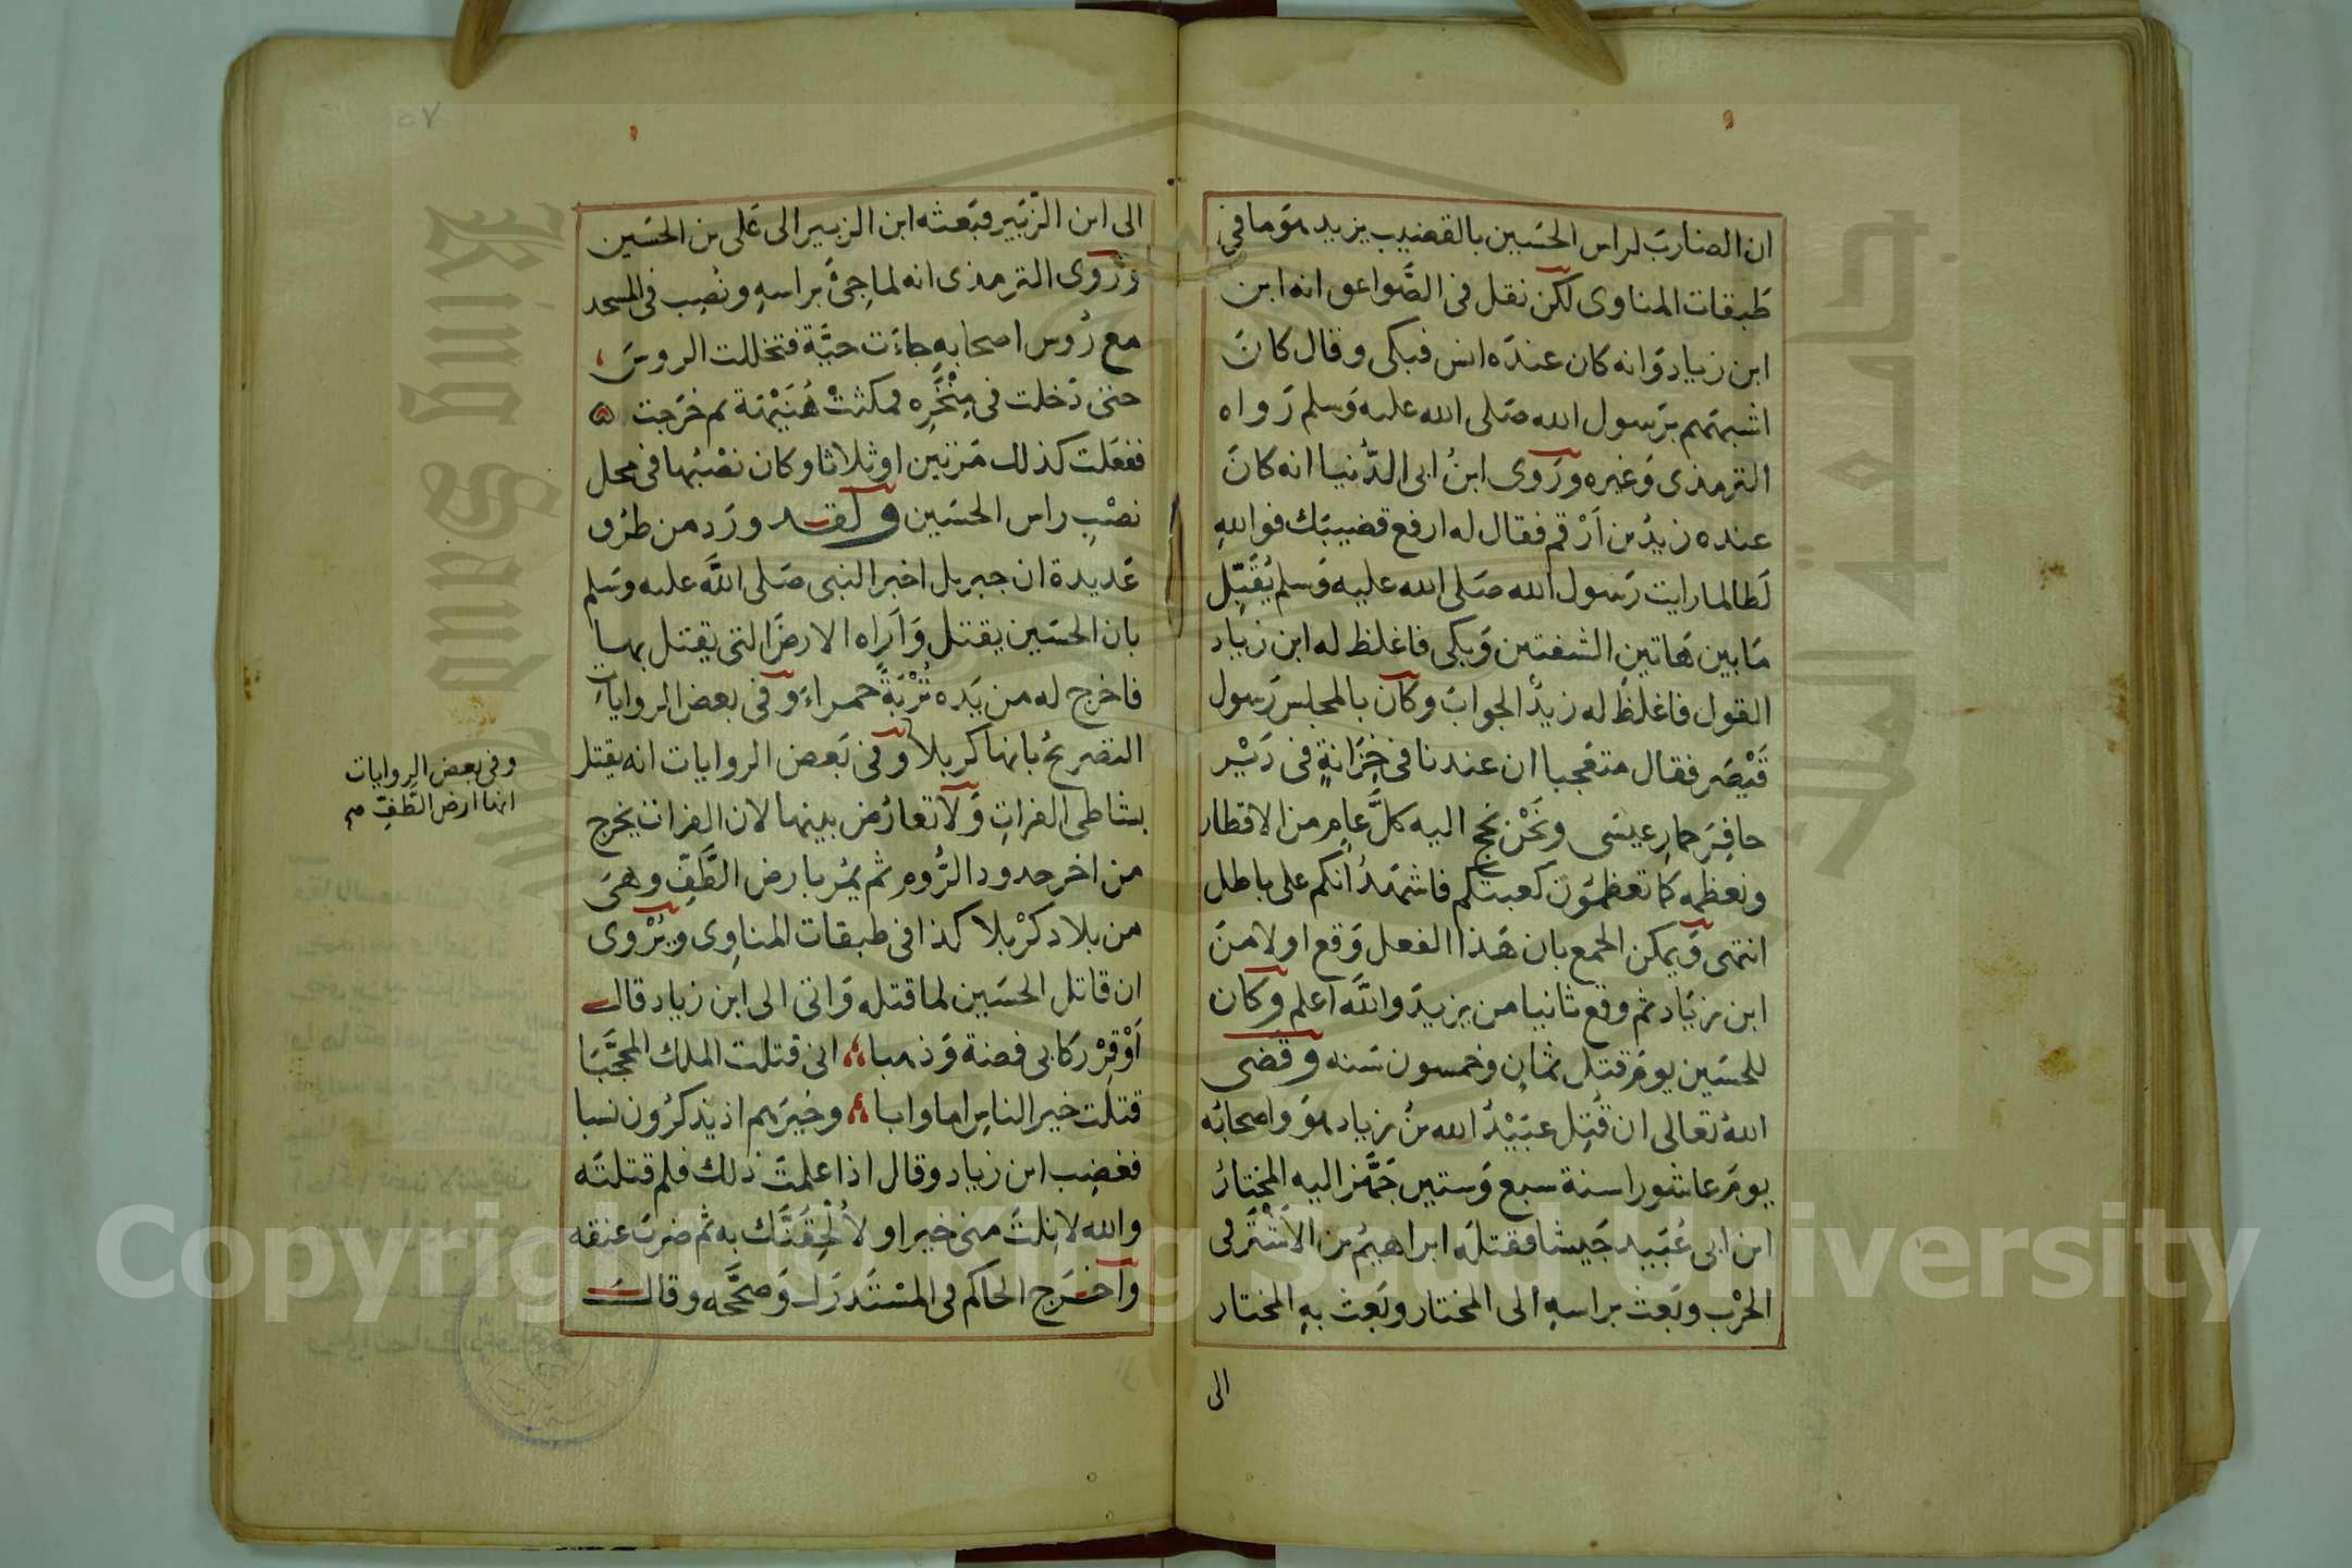 ان الضارب لراس الحسين بالقضيب يزيد هو ما في
طبقات المناوى لكن نقل فى الصَّواعق انه ابن
ابن زياد وانه كان عنده انس فبكى وقال كان
اشبههم برسول الله صلى الله عليه وسلم رواه
الترمذى وغيره وروى ابنُ ابى الدُّنيا انه كان
عنده زيدُ بن اَرْقم فقال له ارفع قضيبك فوالله
لَطالما رايت رسول الله صلى الله عليه وسلم يُقَبِّل
ما بين هاتين الشفتين وبكى فاغلظ له ابن زياد
القول فاغلظ له زيدٌ الجواب وكان بالمجلس رسول
قَيْصَر فقال متعجبا ان عندنا فى خِزَانةٍ فى دَيْر
حافِرَ حمارِ عيسى ونَحْن نحج اليه كلَّ عامٍ من الاقطار
ونعظمه كما تعظمون كعبتكم فاشهدُ انكم على باطل
انتهى ويمكن الجمع بان هذا الفعل وقع اولا من
ابن زياد ثم وقع ثانيا من يزيد والله اعلم وكان
للحسين يوم قتل ثمانٍ وخمسون سنه وقضى
اللهُ تعالى ان قُتِل عبَيْدُ الله بنُ زياد هو واصحابُه
يوم عاشورا سنة سبع وستين جَهَّز اليه المختارُ
ابن ابى عُبَيد جيشا فقتله ابراهيمُ بن الاَشْتَر فى
الحرْب وبعث براسهِ الى المختار وبعث بهِ المختار
الى
الى ابن الزبير فبعثه ابن الزبير الى على بن الحسين
وروى الترمذى انه لما جِئَ براسهِ ونُصِب فى المسجد
مع رُوس اصحابهِ جاءت حيَّة فتخللت الروس
حتى دخلت فى مِنْخَرِه فمكثتْ هُنَيْهَة ثم خرجت
ففعلت كذلك مرتين او ثلاثا وكان نصْبُها فى محل
نصْبِ راس الحسين ولقد ورد من طرق
عديدة ان جبريل اخبر النبى صلى الله عليه وسلم
بان الحسين يقتل وَاَراه الارضَ التى يقتل بها
فاخرج له من يَده تُرْبَةً حمراء وفى بعض الروايات
التصريحُ بانها كربلا وفى بعض الروايات انه يقتل
بشاطى الفراتِ ولا تعارُض بينهما لان الفرات يخرج
من اخر حدود الرُّومِ ثم يمُر بارض الطَّفِّ وهى
من بلاد كرْبلا كذا فى طبقات المناوِى ويُرْوى
ان قاتل الحسين لما قتله واتى الى ابن زياد قال
اَوْقِرْ ركابى فضة وذهبا انى قتلت الملك المحجَّبَا
قتلت خير الناس اما وابا وخيرهم اذ يذكرُون نسبا
فغضِب ابن زياد وقال اذا علمت ذلك فلم قتلته
والله لا نِلتَ منى خيرا ولاُلْحِقَنَّك به ثم ضربَ عنقه
واخرَج الحاكم فى المسْتَدرَك وصحَّحه وقال
وفى بعض الروايات
انها ارض الطَّفِّ